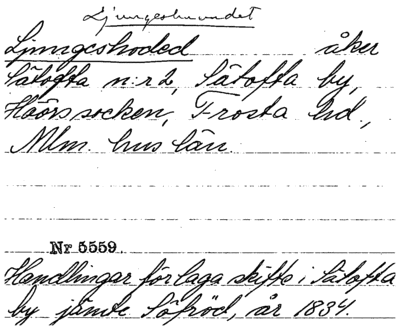 Ljungeshuvudet
Ljungeshoded åker
Sätofta n:r 2, Sätofta by,
Höörs socken, Frosta hd,
Mlm. hus län.
Nr 5559.
Handlingar för laga skifte i Sätofta
by jämte Söfröd, år 1834.